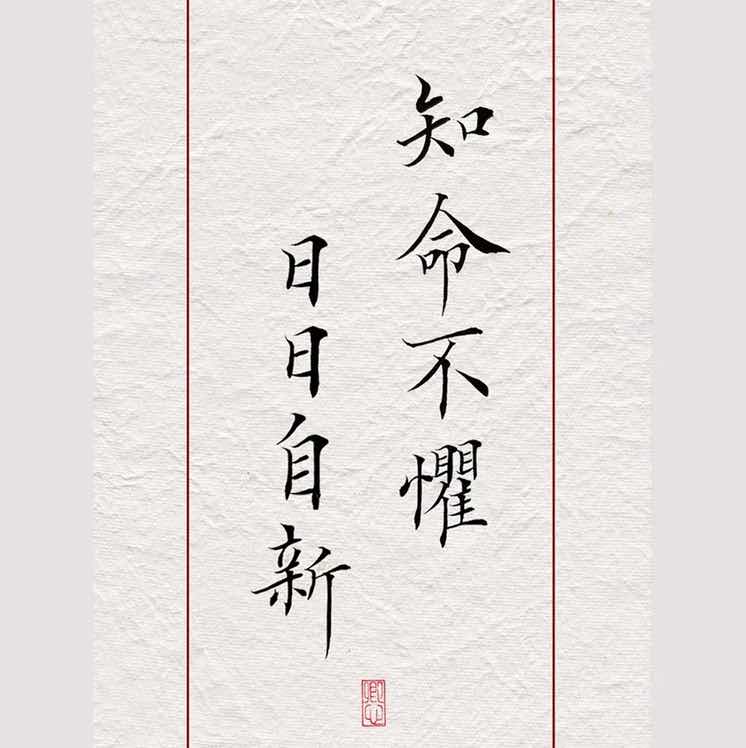 知命不懼
日日自新